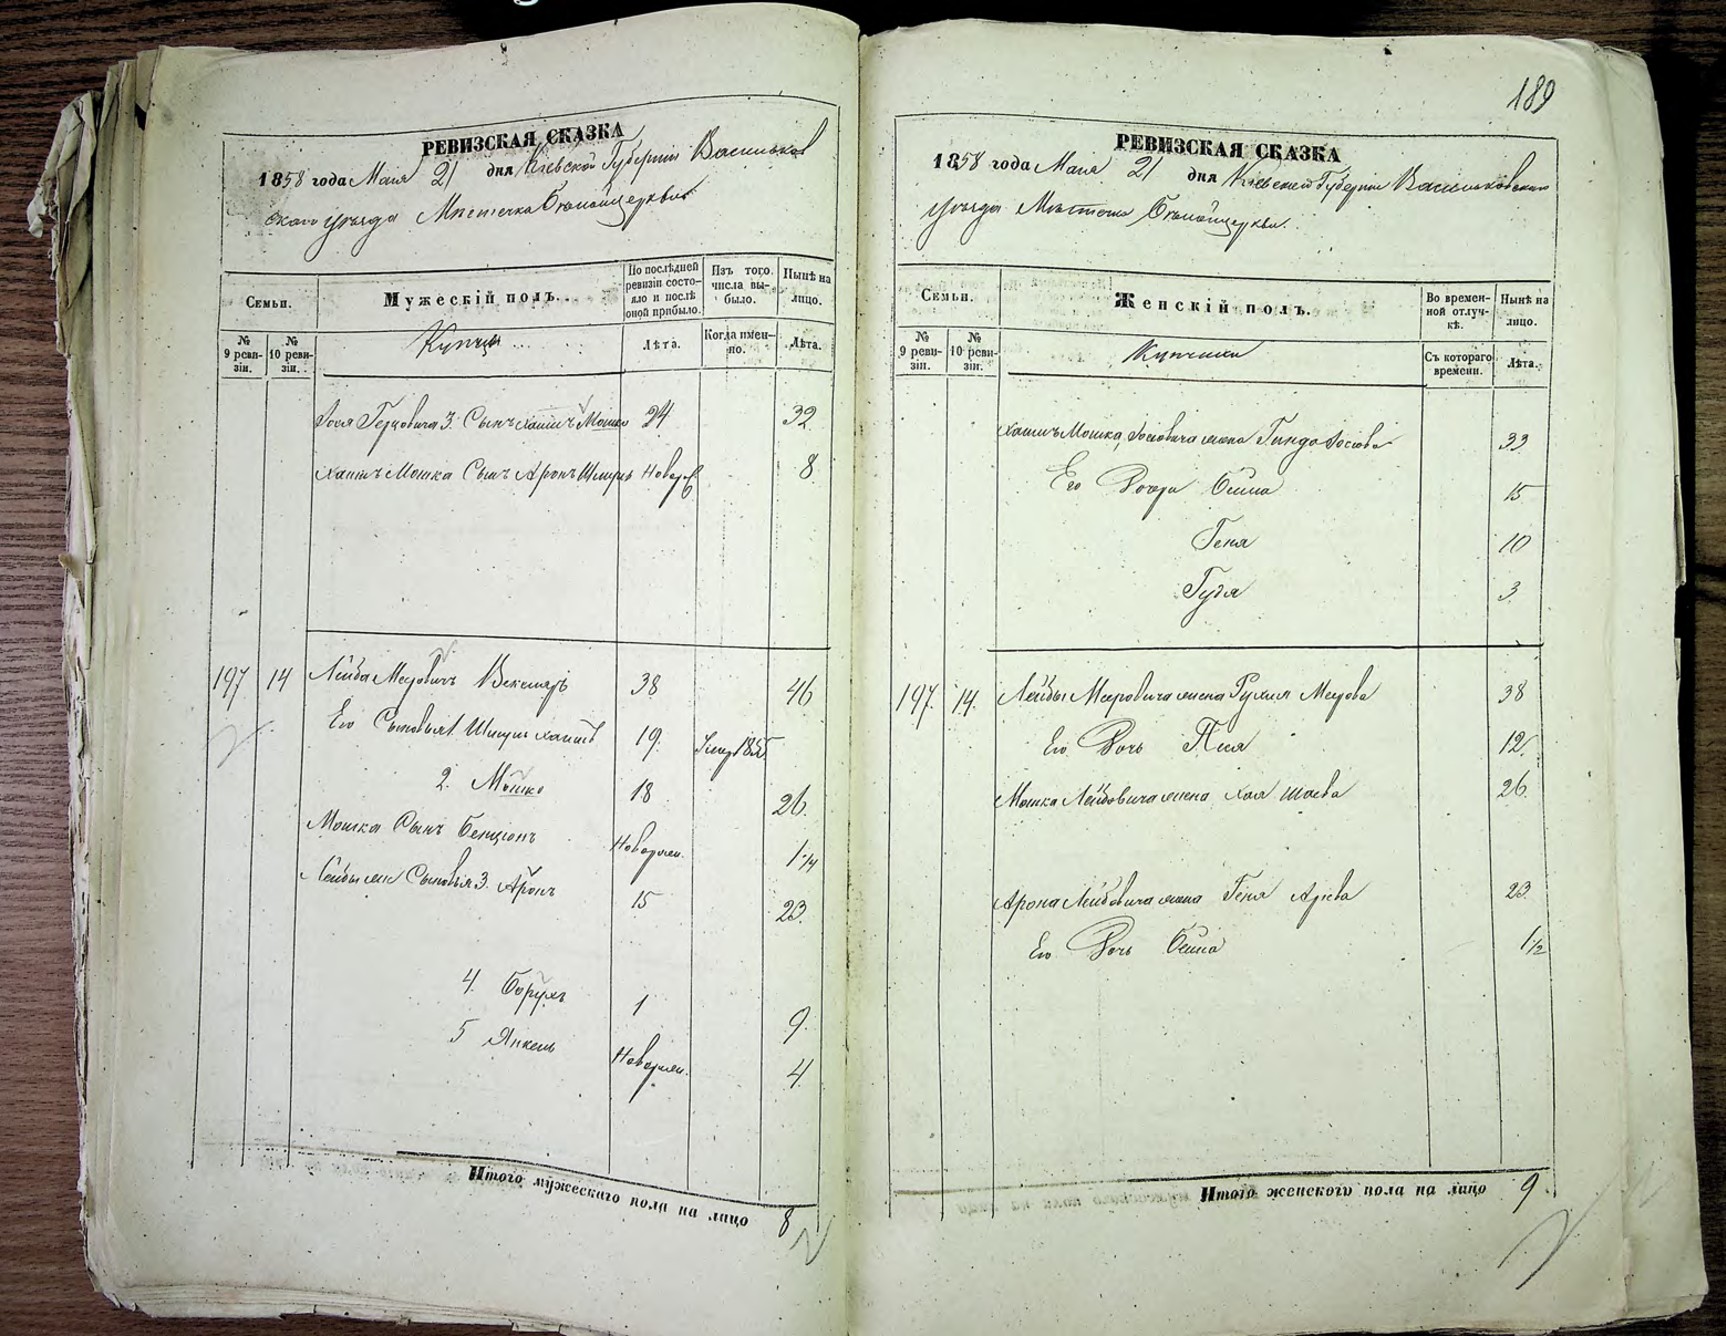 189
РЕВИЗСКАЯ СКАЗКА
1858 года Мая 21 дня Кіевской Губерніи Васильков
скаго уѣзда Мѣстечка Бѣлойцеркви
Семьи.
Мужескій полъ.
По послѣдней ревизіи состояло и послѣ оной прибыло.
Изъ того числа выбыло.
Нынѣ на лицо.
№ 9 ревизіи.
№ 10 ревизіи.
Купцы
Лѣта.
Когда именно.
Лѣта.
Іося Герцовича 3. Сынъ Хаимъ Мошко 24 32
Хаимъ Мошка Сынъ Аронъ Шмуль Новор 8
197 14 Лейба Меерович Векслеръ 38 46
Его Сыновья 1 Шмуль Хаимъ 19. 1855
2. Мошко 18 26.
Мошка Сынъ Бенціонъ Новорожден. 1 1/4
Лейбы же Сыновья 3. Аронъ 15 23.
4. Борухъ 1 9.
5 Янкель Новорожден. 4.
Итого мужескаго пола на лицо 8
РЕВИЗСКАЯ СКАЗКА
1858 года Мая 21 дня Кіевской Губерніи Васильковскаго
уѣзда Мѣстечка Бѣлойцеркви.
Семьи.
Женскій полъ.
Во временной отлучкѣ.
Нынѣ на лицо.
№ 9 ревизіи.
№ 10 ревизіи.
Съ котораго времени.
Лѣта.
Хаимъ Мошка Іосіовича жена Гинда Іосіова 33
Его Дочери Бейла 15
Геня 10
Гудя 3
197. 14. Лейбы Мееровича жена Рухля 38
Его Дочь Песя 12.
Мошка Лейбовича жена Хая Шаева 26.
Арона Лейбовича жена Геня 23
Его Дочь Бейла 1 1/2
Итого женскаго пола на лицо 9.